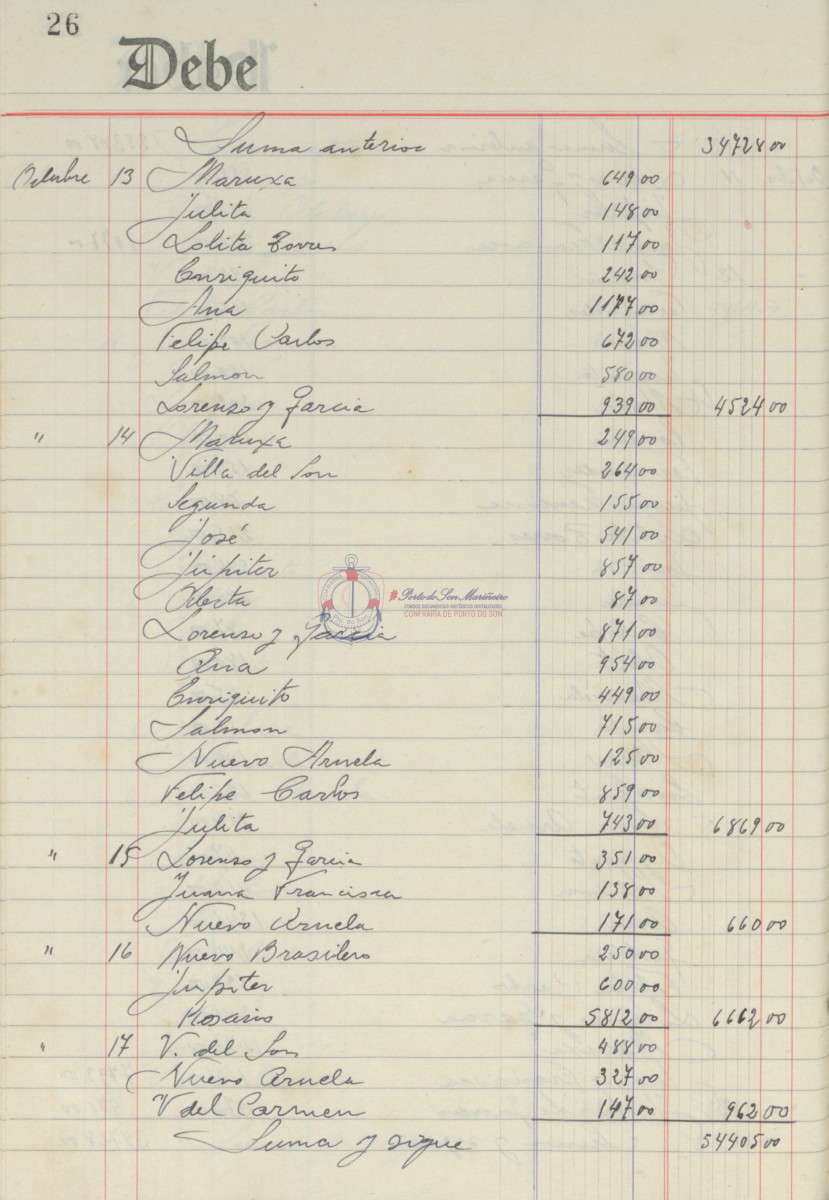 26
Debe
Suma anterior 34728 00
Octubre 13 Maruxa 649 00
Julita 148 00
Lolita Torres 117 00
Enriquito 242 00
Ana 1177 00
Felipe Carlos 672 00
Salmon 580 00
Lorenzo y Garcia 939 00 4524 00
" 14 Maruxa 249 00
Villa del Son 264 00
Segunda 155 00
José 541 00
Júpiter 857 00
87 00
Lorenzo y Garcia 871 00
Ana 954 00
Enriquito 449 00
Salmon 715 00
Nuevo Arnela 125 00
Felipe Carlos 859 00
Julita 743 00 6869 00
" 15 Lorenzo y Garcia 351 00
Juana Francisca 138 00
Nuevo Arnela 171 00 660 00
" 16 Nuevo Brasilero 250 00
Jupiter 600 00
Rosario 5812 00 6662 00
" 17 V. del Son 488 00
Nuevo Arnela 327 00
V del Carmen 147 00 962 00
Suma y sigue 54405 00
#Porto do Son Mariñeiro
FONDOS DOCUMENTAIS HISTÓRICOS DIXITALIZADOS
CONFRARÍA DE PORTO DO SON